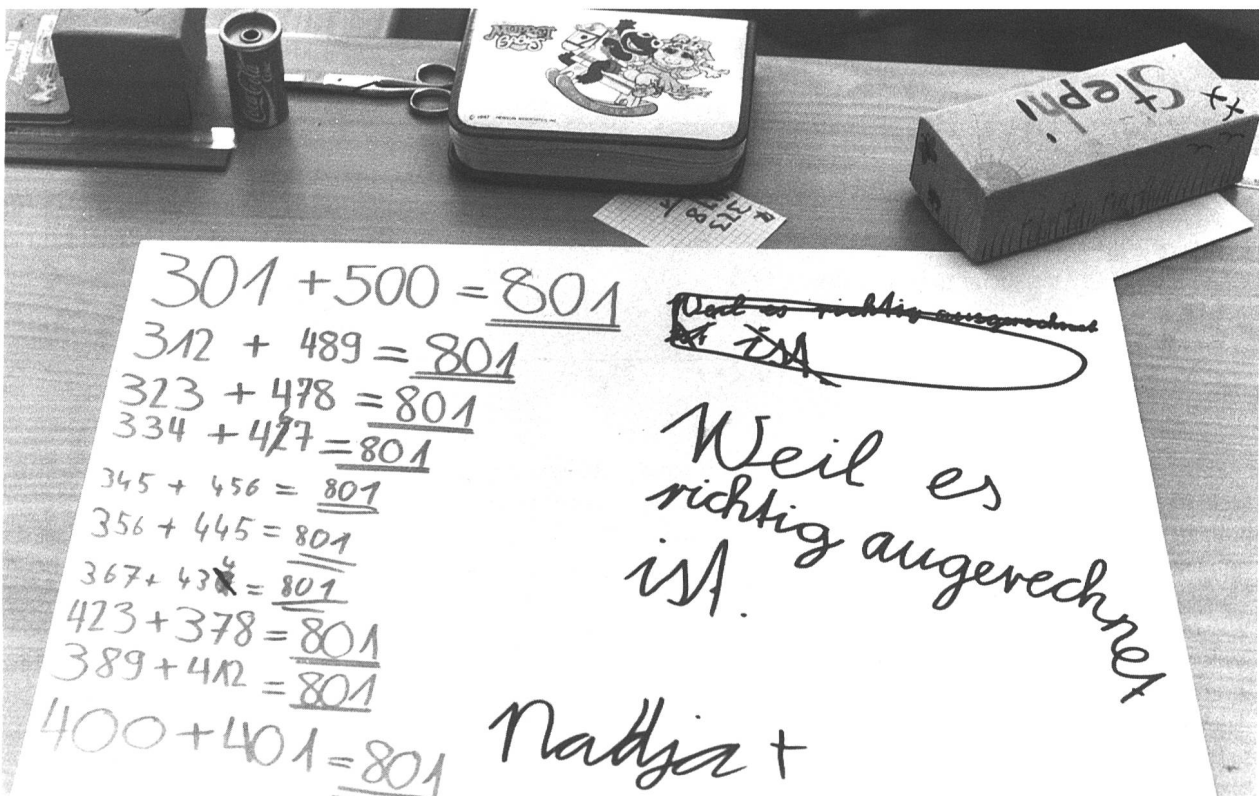 Coca-Cola
© 1987 HENSON ASSOCIATES, INC.
Stephi
378
301 + 500 = 801
312 + 489 = 801
323 + 478 = 801
334 + 467 = 801
345 + 456 = 801
356 + 445 = 801
367 + 434 = 801
423 + 378 = 801
389 + 412 = 801
400 + 401 = 801
Weil es richtig ausgerechnet
ist
Weil es
richtig augerechnet
ist.
Nadja +